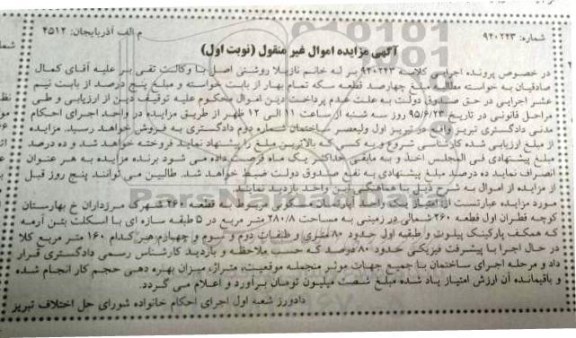 شماره: ۹۴۰۲۲۳
م الف آذربایجان: ۲۵۱۲
آگهی مزایده اموال غیر منقول (نوبت اول)
در خصوص پرونده اجرایی کلاسه ۹۴۰۲۲۳ له خانم نازیلا روشنی اصل با وکالت تقی بر علیه آقای کمال
صادقیان به خواسته مطالبه مبلغ چهارصد قطعه سکه تمام بهار از بابت خواسته و مبلغ پنج درصد از بابت نیم
عشر اجرایی در حق صندوق دولت به علت عدم پرداخت دین اموال محکوم علیه توقیف دین از ارزیابی و طی
مراحل قانونی در تاریخ ۹۵/۶/۲۳ روز سه شنبه از ساعت ۱۱ الی ۱۲ ظهر از طریق مزایده در واحد اجرای احکام
مدنی دادگستری تبریز واقع در تبریز اول ولیعصر ساختمان شماره دوم دادگستری به فروش خواهد رسید. مزایده
از مبلغ ارزیابی شده کارشناسی شروع و به کسی که بالاترین مبلغ را پیشنهاد نمایند فروخته خواهد شد و ده درصد
مبلغ پیشنهادی فی المجلس اخذ و به مابقی حداکثر یک ماه فرصت داده می شود برنده مزایده به هر عنوان
انصراف نماید ده درصد مبلغ پیشنهادی به نفع صندوق دولت ضبط خواهد شد. طالبین می توانند پنج روز قبل
از مزایده از اموال به شرح ذیل با هماهنگی این واحد بازدید نمایند.
مورد مزایده عبارتست از مربوط به قطعه ۲۶۱ شهرک مرزداران خ بهارستان
کوچه قطران اول قطعه ۲۶۰ شمالی در زمینی به مساحت ۲۸۰/۸ متر مربع در ۵ طبقه سازه ای با اسکلت بتن آرمه
که همکف پارکینگ پیلوت و طبقه اول حدود ۸۰ متری و طبقات دوم و سوم و چهارم هر کدام ۱۶۰ متر مربع کلا
در حال اجرا با پیشرفت فیزیکی حدود ۸۰ درصد که حسب ملاحظه و بازدید کارشناس رسمی دادگستری قرار
داد و مرحله اجرای ساختمان با جمیع جهات موثر منجمله موقعیت، متراژ، میزان بهره دهی حجم کار انجام شده
و باقیمانده آن ارزش امتیاز یاد شده مبلغ شصت میلیون تومان برآورد و اعلام می گردد.
دادورز شعبه اول اجرای احکام خانواده شورای حل اختلاف تبریز